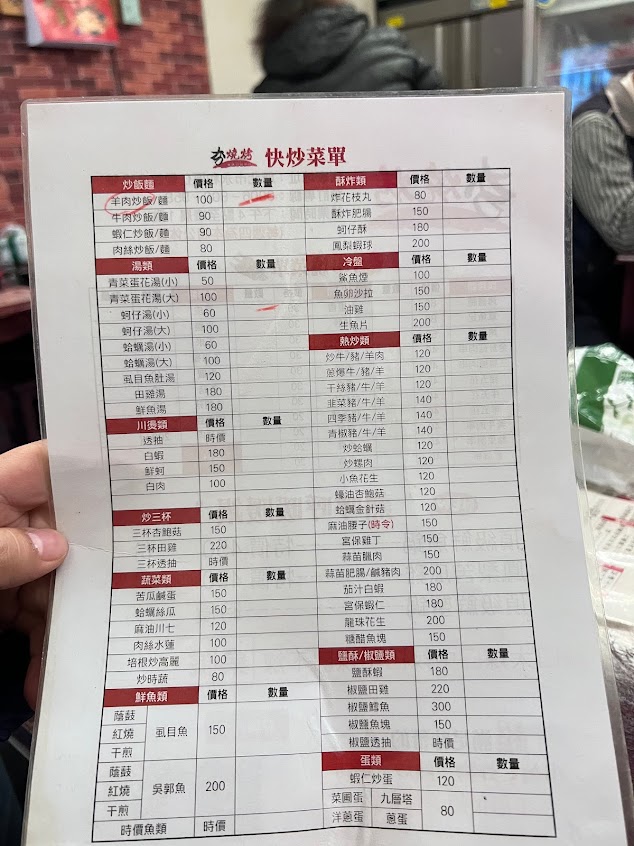 燒烤 快炒菜單
炒飯麵 價格 數量
羊肉炒飯/麵 100
牛肉炒飯/麵 90
蝦仁炒飯/麵 90
肉絲炒飯/麵 80
湯類 價格 數量
青菜蛋花湯(小) 50
青菜蛋花湯(大) 100
蚵仔湯(小) 60
蚵仔湯(大) 100
蛤蠣湯(小) 60
蛤蠣湯(大) 100
虱目魚肚湯 120
田雞湯 180
鮮魚湯 180
川燙類 價格 數量
透抽 時價
白蝦 180
鮮蚵 150
白肉 100
炒三杯 價格 數量
三杯杏鮑菇 150
三杯田雞 220
三杯透抽 時價
蔬菜類 價格 數量
苦瓜鹹蛋 150
蛤蠣絲瓜 150
麻油川七 120
肉絲水蓮 100
培根炒高麗 100
炒時蔬 80
鮮魚類 價格 數量
蔭鼓
紅燒 虱目魚 150
干煎
蔭鼓
紅燒 吳郭魚 200
干煎
時價魚類 時價
酥炸類 價格 數量
炸花枝丸 80
酥炸肥腸 150
蚵仔酥 180
鳳梨蝦球 200
冷盤 價格 數量
鯊魚煙 100
魚卵沙拉 150
油雞 150
生魚片 200
熱炒類 價格 數量
炒牛/豬/羊肉 120
蔥爆牛/豬/羊 120
干絲豬/牛/羊 120
韭菜豬/牛/羊 140
四季豬/牛/羊 140
青椒豬/牛/羊 140
炒蛤蠣 120
炒螺肉 120
小魚花生 120
蠔油杏鮑菇 120
蛤蠣金針菇 120
麻油腰子(時令) 150
宮保雞丁 150
蒜苗臘肉 150
蒜苗肥腸/鹹豬肉 200
茄汁白蝦 180
宮保蝦仁 180
龍珠花生 200
糖醋魚塊 150
鹽酥/椒鹽類 價格 數量
鹽酥蝦 180
椒鹽田雞 220
椒鹽鱈魚 300
椒鹽魚塊 150
椒鹽透抽 時價
蛋類 價格 數量
蝦仁炒蛋 120
菜圃蛋 九層塔 80
洋蔥蛋 蔥蛋